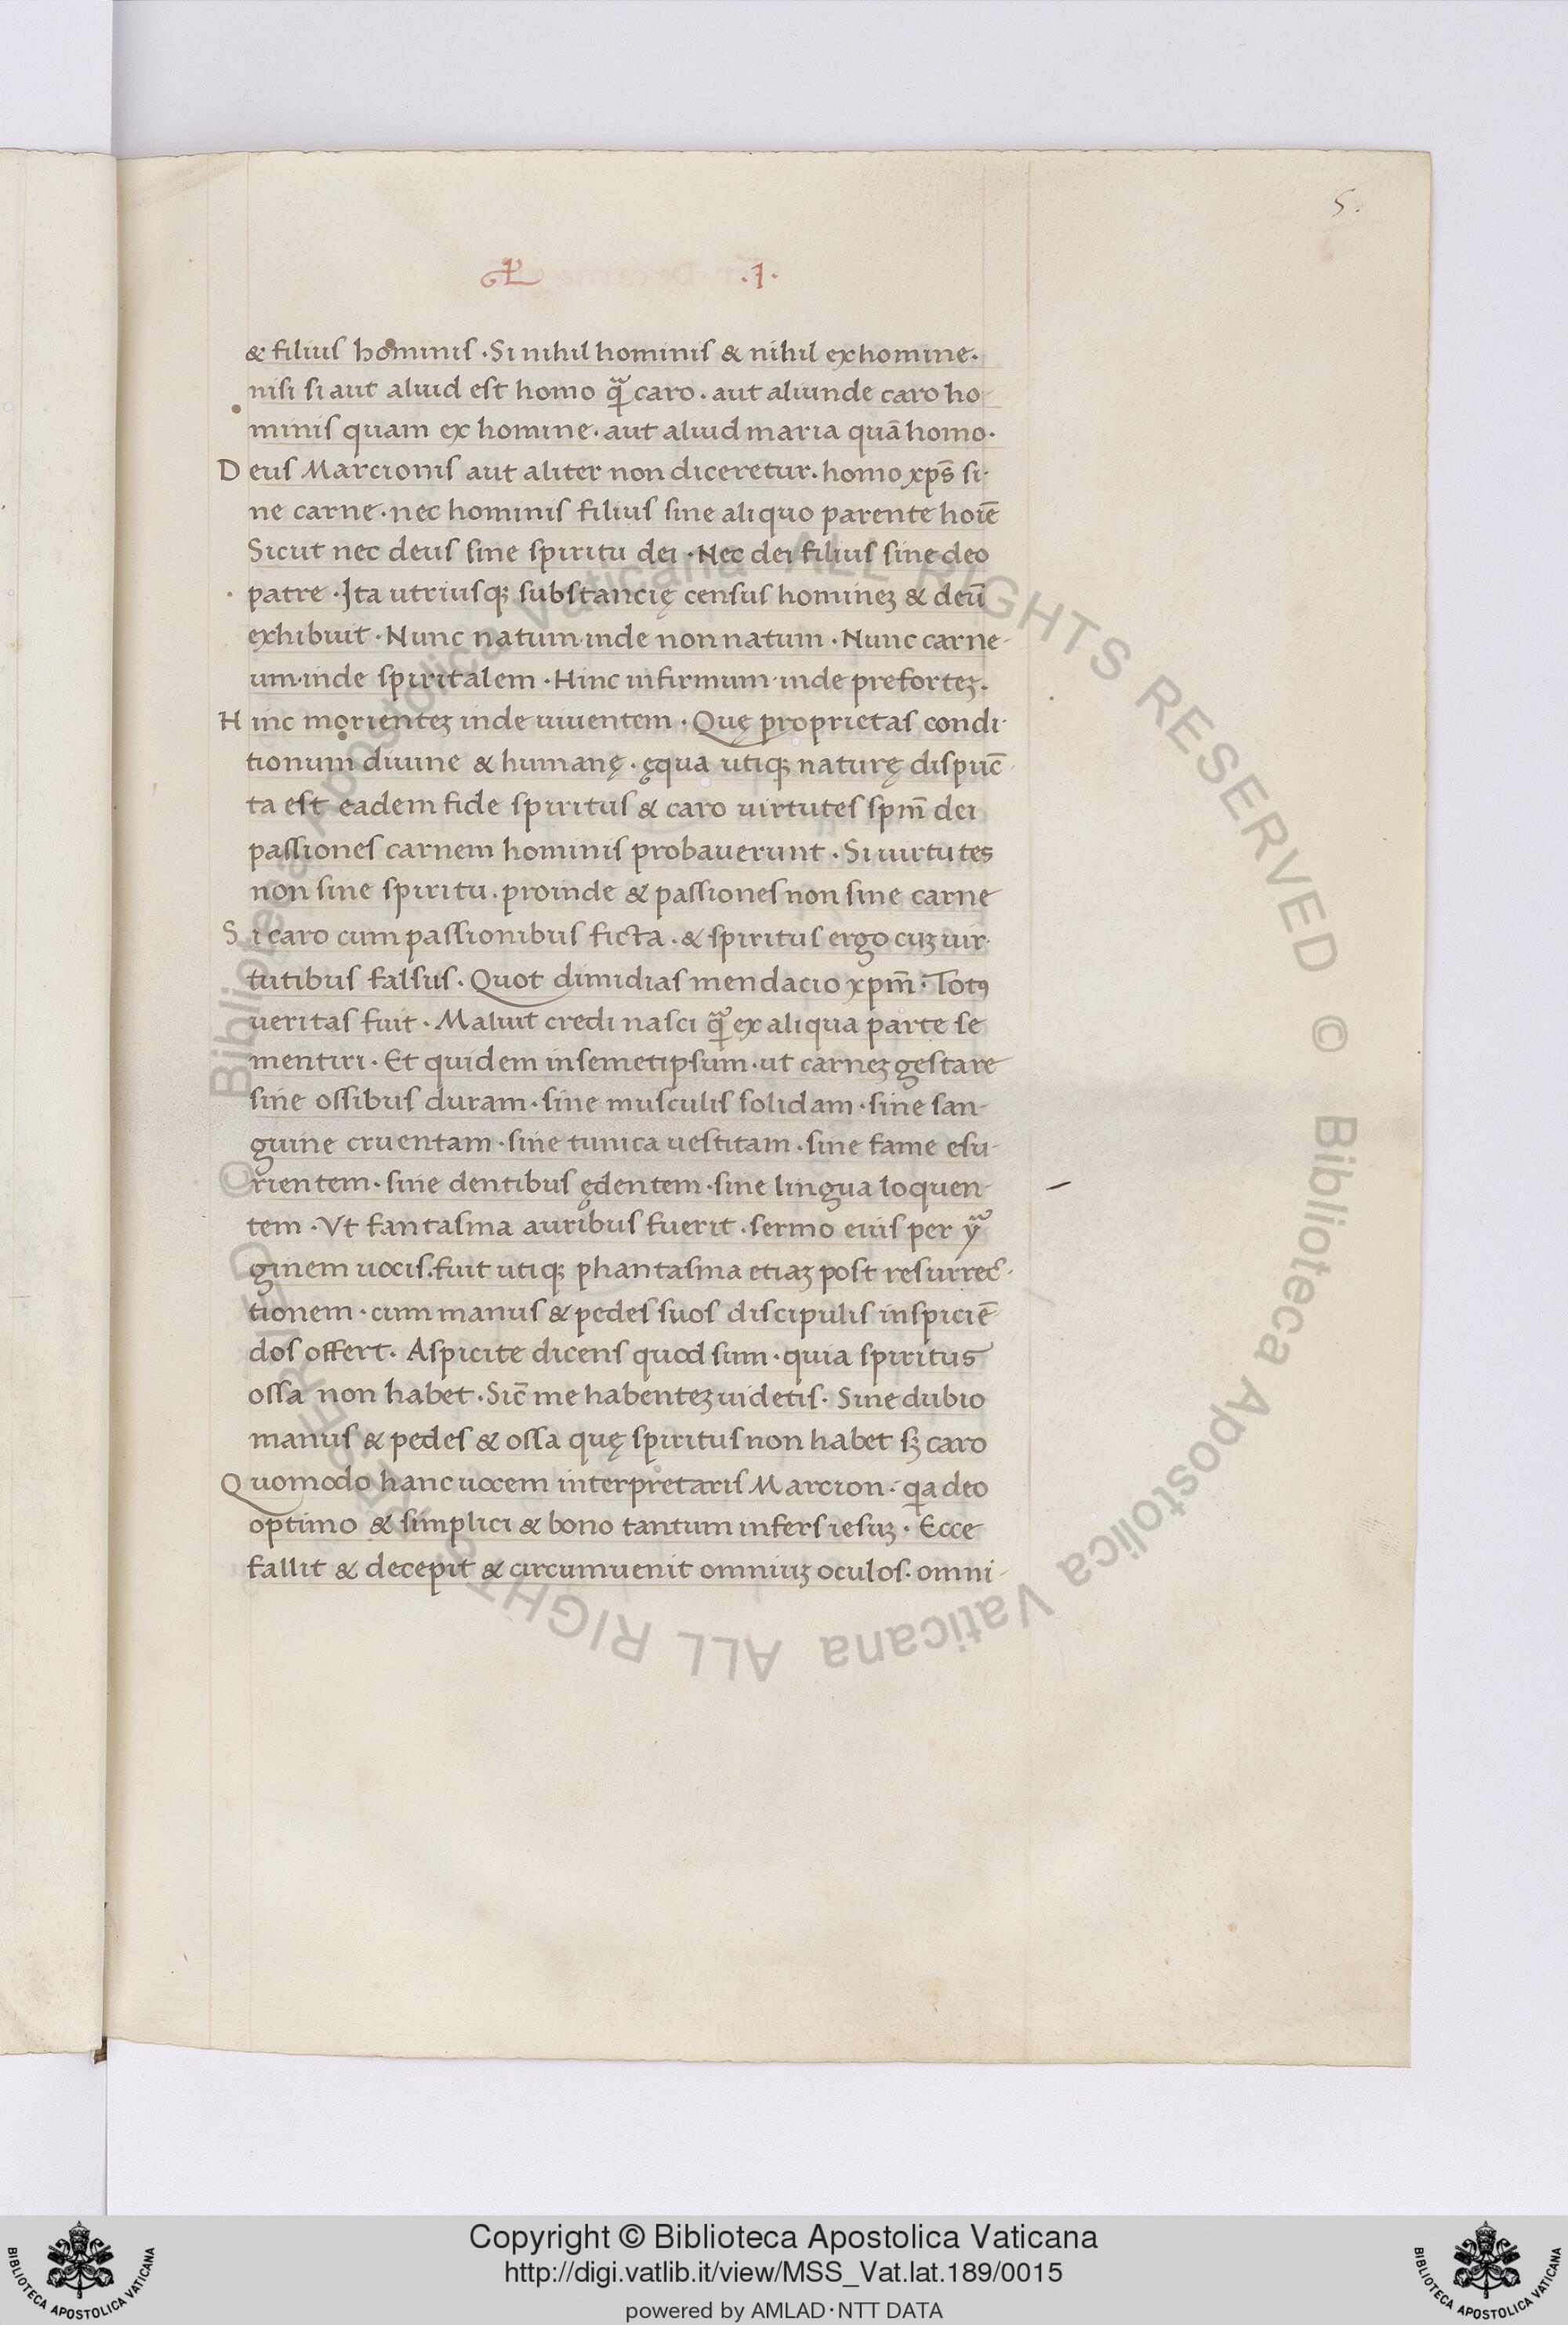 5.
.1.
& filius hominis · Si nihil hominis & nihil ex homine.
nisi si aut aliud est homo quā caro . aut aliunde caro ho-
minis quam ex homine . aut aliud maria quā homo.
Deus Marcionis aut aliter non diceretur . homo xp̄s si-
ne carne . nec hominis filius sine aliquo parente hoīe
Sicut nec deus sine spiritu dei · Nec dei filius sine deo
patre · Ita utriusqꝫ substancię census homineꝫ & deū
exhibuit · Nunc natum inde non natum · Nunc carne-
um·inde spiritalem · Hinc infirmum·inde preforteꝫ.
Hinc morienteꝫ inde uiuentem · Quę proprietas condi-
tionum diuine & humanę · ęqua utiqꝫ naturę dispūc-
ta est eadem fide spiritus & caro uirtutes sp̄m dei
passiones carnem hominis probauerunt . Si uirtutes
non sine spiritu . proinde & passiones non sine carne
Si caro cum passionibus ficta . & spiritus ergo cuꝫ uir-
tutibus falsus . Quot dimidias mendacio xp̄m · Totꝯ
ueritas fuit · Maluit credi nasci quā ex aliqua parte se
mentiri · Et quidem in semetipsum · ut carneꝫ gestare
sine ossibus duram · sine musculis solidam · sine san-
guine cruentam · sine tunica uestitam · sine fame esu-
rientem · sine dentibus ędentem · sine lingua loquen-
tem · Vt fantasma auribus fuerit . sermo eius per yma
ginem uocis.fuit utiqꝫ phantasma etiaꝫ post resurrec-
tionem · cum manus & pedes suos discipulis inspiciē
dos offert . Aspicite dicens quod sum · quia spiritus
ossa non habet . Sic̄ me habenteꝫ uidetis . Sine dubio
manus & pedes & ossa quę spiritus non habet sꝫ caro
Quomodo hanc uocem interpretaris Marcion · qia deo
optimo & simplici & bono tantum infers iesuꝫ . Ecce
fallit & decepit & circumuenit omniuꝫ oculos . omni-
© Biblioteca Apostolica Vaticana ALL RIGHTS RESERVED © Biblioteca Apostolica Vaticana ALL RIGHTS RESERVED
Copyright © Biblioteca Apostolica Vaticana
http://digi.vatlib.it/view/MSS_Vat.lat.189/0015
powered by AMLAD·NTT DATA
BIBLIOTECA APOSTOLICA VATICANA
BIBLIOTECA APOSTOLICA VATICANA